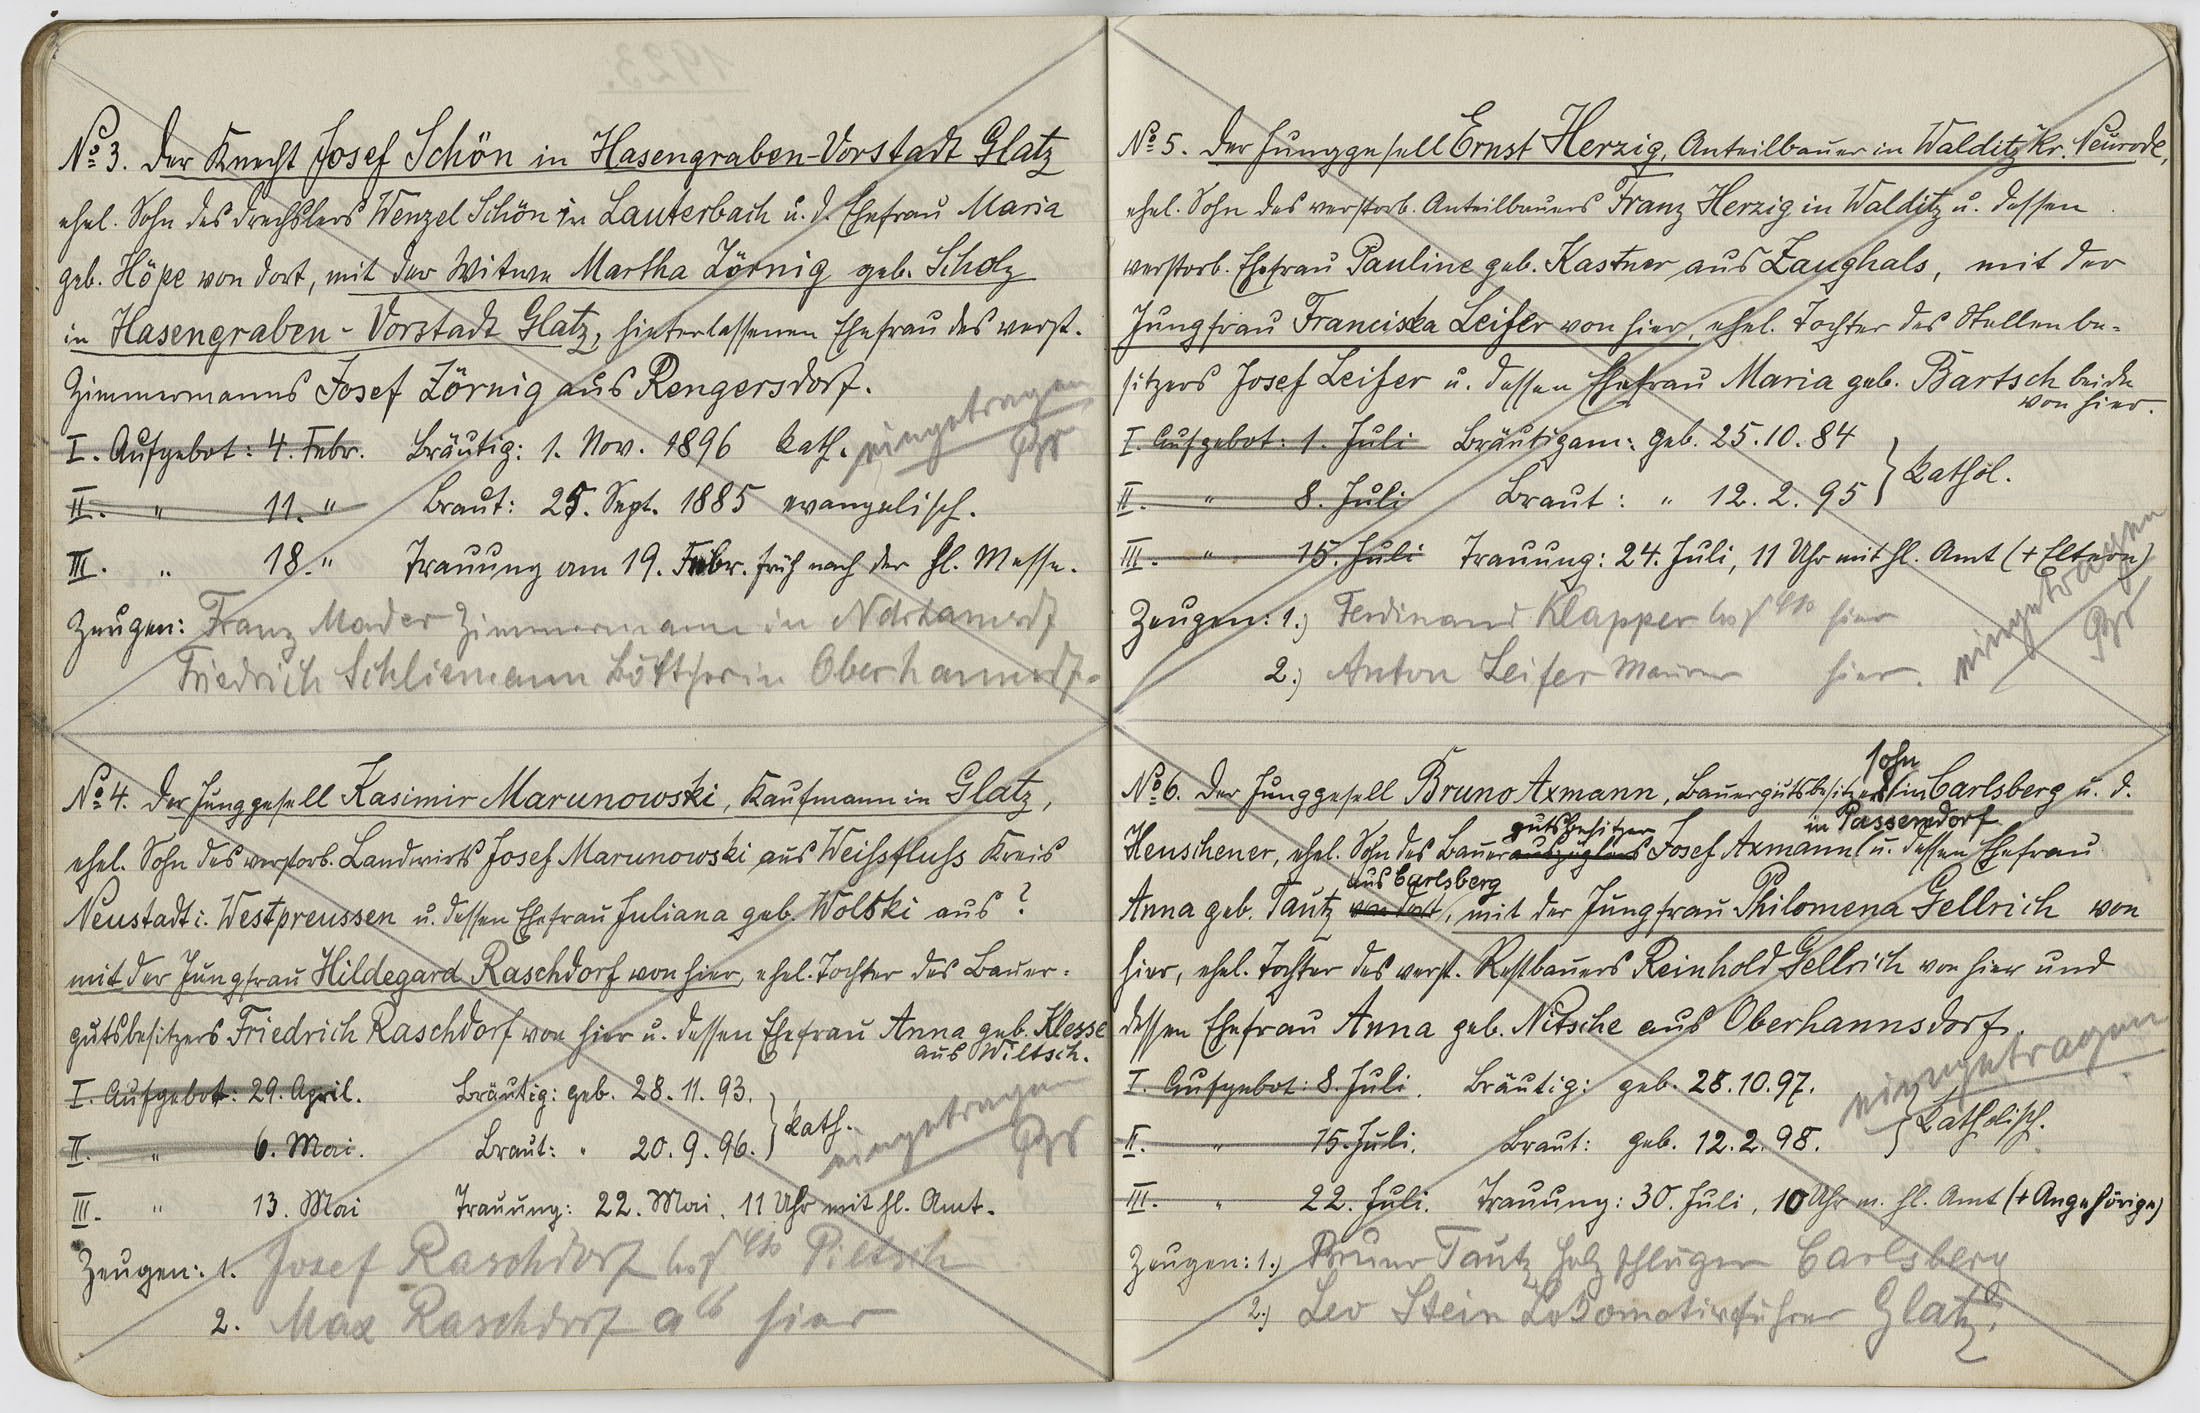 No 3. Der Knecht Josef Schön in Hasengraben-Vorstadt Glatz
ehel. Sohn des Drechslers Wenzel Schön in Lauterbach u. d. Ehefrau Maria
geb. Höpe von dort, mit der Witwe Martha Zörnig geb. Scholz
in Hasengraben-Vorstadt Glatz, hinterlassenen Ehefrau des verst.
Zimmermanns Josef Zörnig aus Rengersdorf.
I. Aufgebot: 4. Febr. Bräutig: 1. Nov. 1896 kath. eingetragen
II. " 11. " Braut: 25. Sept. 1885 evangelisch.
III. " 18. " Trauung am 19. Febr. früh nach der hl. Messe.
Zeugen: Franz Mader Zimmermann in
Friedrich Schliemann Böttcher in Oberhannsdf.
No 4. Der Junggesell Kasimir Marunowski, Kaufmann in Glatz,
ehel. Sohn des verstorb. Landwirts Josef Marunowski aus Weissfluss Kreis
Neustadt i. Westpreussen u. dessen Ehefrau Juliana geb. Wolski aus ?
mit der Jungfrau Hildegard Raschdorf von hier, ehel. Tochter des Bauer-
gutsbesitzers Friedrich Raschdorf von hier u. dessen Ehefrau Anna geb. Klesse
aus Wiltsch.
I. Aufgebot: 29. April. Bräutig: geb. 28. 11. 93.
II. " 6. Mai. Braut: " 20. 9. 96. } kath. eingetragen
III. " 13. Mai Trauung: 22. Mai, 11 Uhr mit hl. Amt.
Zeugen: 1. Josef Raschdorf Piltsch
2. Max Raschdorf hier
No 5. Der Junggesell Ernst Herzig, Anteilbauer in Walditz Kr. Neurode,
ehel. Sohn des verstorb. Anteilbauers Franz Herzig in Walditz u. dessen
verstorb. Ehefrau Pauline geb. Kastner aus Zaughals, mit der
Jungfrau Franciska Leifer von hier, ehel. Tochter des Stellenbe-
sitzers Josef Leifer u. dessen Ehefrau Maria geb. Bartsch beide
von hier.
I. Aufgebot: 1. Juli Bräutigam: geb. 25. 10. 84
II. " 8. Juli Braut: " 12. 2. 95 } kathol.
III. " 15. Juli Trauung: 24. Juli, 11 Uhr mit hl. Amt (+ Eltern)
Zeugen: 1.) Ferdinand Klapper hier
2.) Anton Leifer Maurer hier. eingetragen
No 6. Der Junggesell Bruno Axmann, Bauergutsbesitzersohn in Carlsberg u. d.
Heuscheuer, ehel. Sohn des Bauerauszüglers gutsbesitzer Josef Axmann in Passendorf u. dessen Ehefrau
Anna geb. Tautz von dort aus Carlsberg, mit der Jungfrau Philomena Gellrich von
hier, ehel. Tochter des verst. Restbauers Reinhold Gellrich von hier und
dessen Ehefrau Anna geb. Nitsche aus Oberhannsdorf.
I. Aufgebot: 8. Juli. Bräutig: geb. 28. 10. 97. eingetragen
II. " 15. Juli. Braut: geb. 12. 2. 98. } katholisch.
III. " 22. Juli. Trauung: 30. Juli, 10 Uhr m. hl. Amt (+ Angehörige)
Zeugen: 1.) Bruno Tautz Holzschläger Carlsberg
2.) Leo Stein Lokomotivführer Glatz.